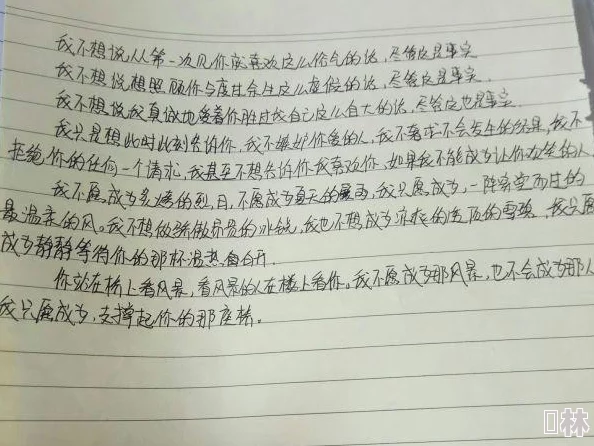 我不想说从第一次见你就喜欢这么俗气的话,尽管这是事实
我不想说想照顾你与度过余生这么虚假的话,尽管这是事实.
我不想说我真诚地爱着你胜过我自己这么自大的话,尽管这也是事实.
我只是想此时此刻告诉你,我不嫉妒你爱的人,我不奢求不会发生的结果,我不
拒绝你的任何一个请求,我甚至不想告诉你我喜欢你,如果我不能成为让你欢笑的人.
我不愿成为炙烤的烈日,不愿成为夏天的暴雨,我只愿成为,一阵穿堂而过的
最温柔的风。我不想做骄傲昂贵的冰锐,我也不想成为的雪碧,我只愿
成为静静等待你的那杯温热白开.
你站在桥上看风景,看风景的人在楼上看你。我不愿成为那风景,也不会成为那人
我只愿成为,支撑起你的那座桥。
林